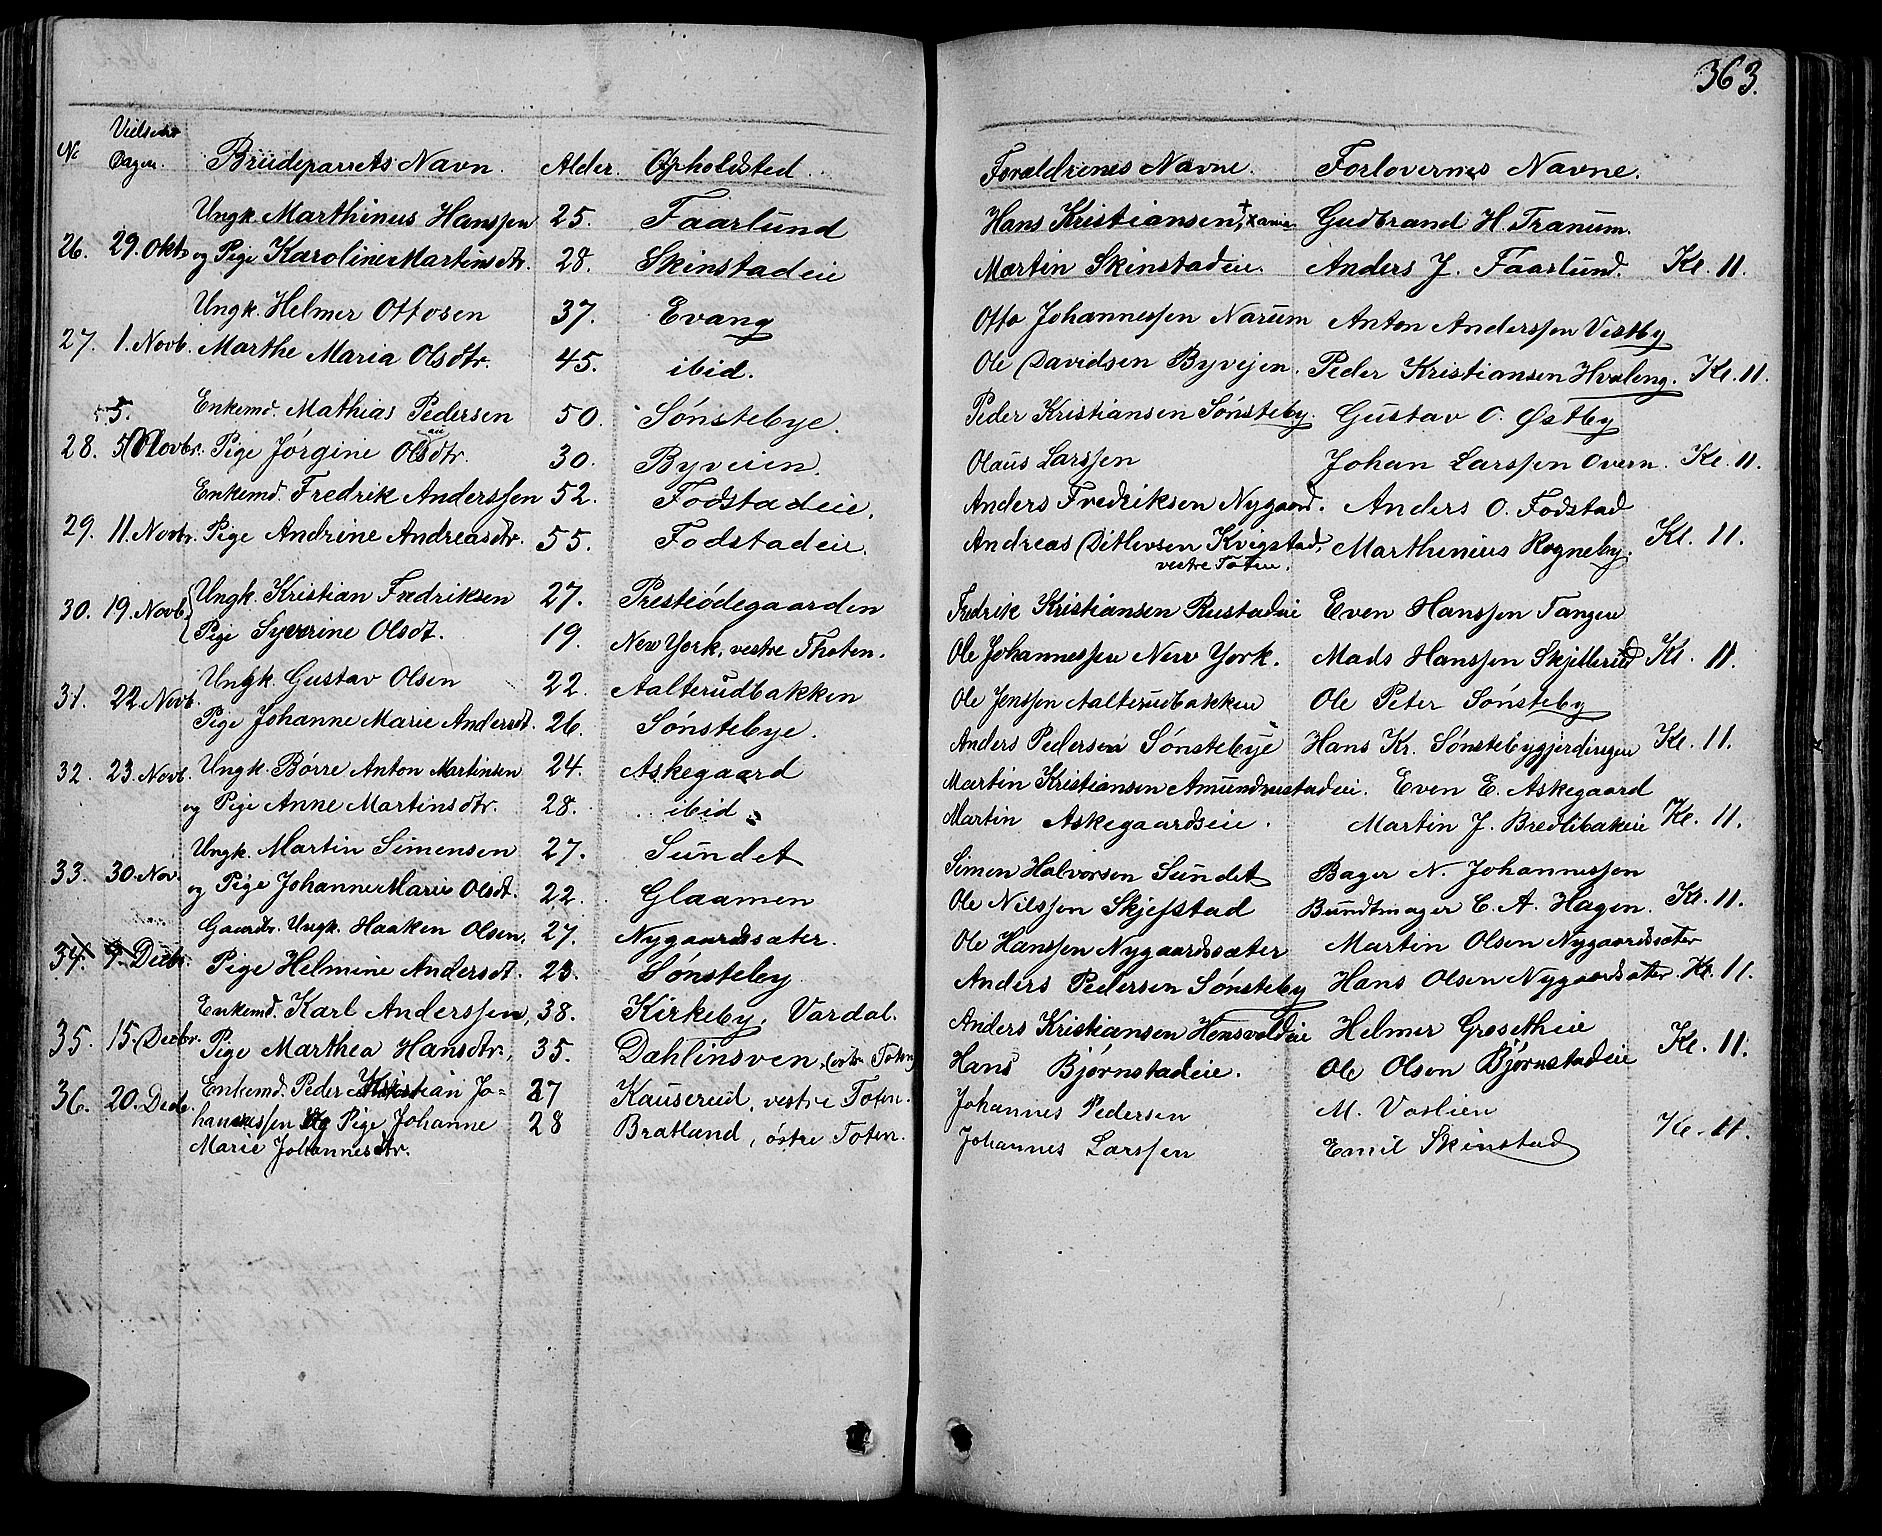 363.
No Vielses Dagen. Brudeparrets Navn. Alder. Opholdsted.
Forældrenes Navne. Forlovernes Navne.
Ungk. Marthinus Hanssen 25. Faarlund
Hans Kristiansen Gudbrand H. Tranum.
26. 29. Oktr og Pige Karoline Martinsdtr. 28. Skinstadeie
Martin Skinstadeie. Anders J. Faarlund. Kl. 11.
Ungk. Helmer Ottosen 37. Evang
Otto Johannessen Narum Anton Anderssen Vestby
27. 1. Novb. Marthe Maria Olsdtr. 45. ibid.
Ole Davidsen Byvejen. Peder Kristiansen Hvaleng. Kl. 11.
5. Enkemd. Mathias Pedersen 50. Sønstebye.
Peder Kristiansen Sønsteby. Gustav O. Østby
28. Novbr. Pige Jørgine Olsdtr. 30. Byveien.
Olaus Larssen Johan Larssen Overn. Kl. 11.
Enkemd. Fredrik Anderssen 52. Fodstadeie.
Anders Fredriksen Nygaard. Anders O. Fodstad
29. 11. Novbr. Pige Andrine Andreasdtr. 55. Fodstadeie.
Andreas Ditlevsen Kvigstad, Marthinius Rogneby. Kl. 11.
vestre Toten.
Ungk. Kristian Fredriksen 27. Prestødegaarden
Fredrik Kristiansen Rustadeie Even Hanssen Tangen
30. 19. Novb. Pige Syverine Olsdt. 19. New York, vestre Thoten.
Ole Johannessen New York. Mads Hanssen Skjellerud Kl. 11.
Ungk. Gustav Olsen 22. Aalterudbakken
Ole Jenssen Aalterudbakken Ole Peter Sønsteby
31. 22. Novb. Pige Johanne Marie Andersdt. 26. Sønstebye.
Anders Pedersen Sønstebye Hans Kr. Sønstebygjerdingen Kl. 11.
32. 23. Novb. Ungk. Børre Anton Martinsen 24. Askegaard
Martin Kristiansen Amundrustadeie. Even E. Askegaard
og Pige Anne Martinsdtr. 28. ibid.
Martin Askegaardseie. Martin J. Bredlibakeie Kl. 11.
Ungk. Martin Simensen 27. Sundet
Simen Halvorsen Sundet Bager N. Johannessen
33. 30. Nov. og Pige Johanne Marie Olsdt. 22. Glaamen
Ole Nilssen Skjefstad Bundtmager C. A. Hagen. Kl. 11.
Gaardbr. Ungk. Haaken Olsen, 27. Nygaardsæter.
Ole Hanssen Nygaardssæter Martin Olsen Nygaardsæter
34. 9. Decbr. Pige Helmine Andersdt. 23. Sønsteby
Anders Pedersen Sønsteby Hans Olsen Nygaardsæter. Kl. 11.
Enkemd. Karl Anderssen, 38. Kirkeby, Vardal.
Anders Kristiansen Hensvoldeie Helmer Grøsetheie
35. 15. Decbr. Pige Marthea Hansdtr, 35. Dahlinsven, Toten
Hans Bjørnstadeie. Ole Olsen Bjørnstadeie Kl. 11.
36. 20. Decb. Enkemd. Peder Kristian Jo= 27 Kauserud, vestre Toten.
Johannes Pedersen M. Voslien
hannessen og Pige Johanne 28 Bratland, østre Toten.
Johannes Larssen Emil Skinstad Kl. 11.
Marie Johannesdtr.